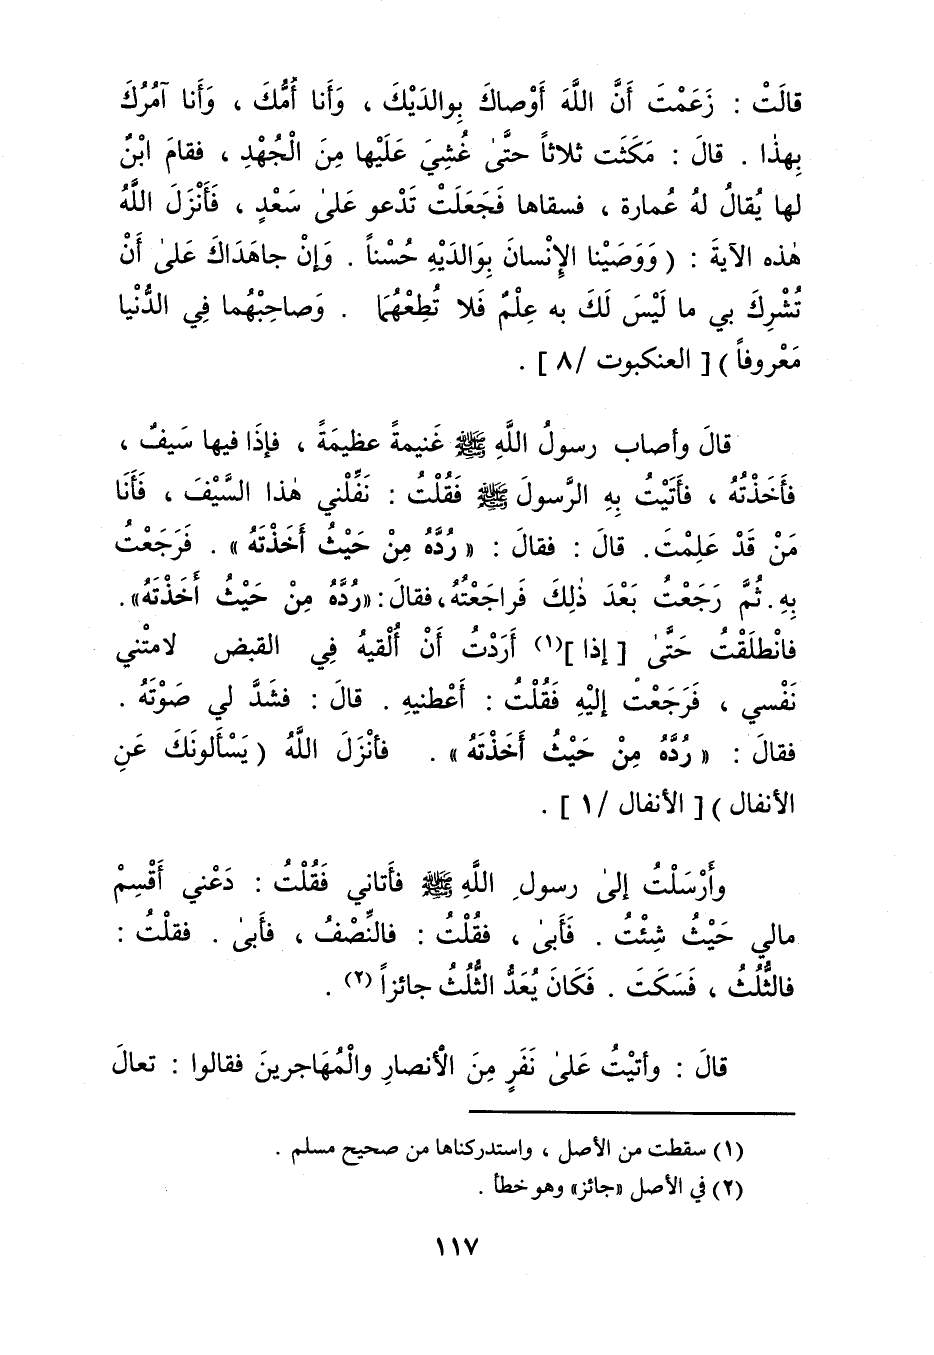 قالَتْ : زَعَمْتَ أَنَّ اللَّهَ أَوْصاكَ بِوالدَيْكَ ، وَأَنا أُمُّكَ ، وَأَنا آمُرُكَ
بِهذا . قالَ : مَكَثَت ثلاثاً حتَّىٰ غُشِيَ عَلَيْها مِنَ الْجُهْدِ ، فقامَ ابْنٌ
لها يُقالُ لهُ عُمارة ، فسقاها فَجَعَلَتْ تَدْعو عَلىٰ سَعْدٍ ، فَأَنْزَلَ اللَّهُ
هٰذه الآيةَ : ( وَوَصَيْنا الإِنْسانَ بِوَالدَيْهِ حُسْناً . وَإِنْ جاهَدَاكَ عَلىٰ أَنْ
تُشْرِكَ بي ما لَيْسَ لَكَ به عِلْمٌ فَلا تُطِعْهُمَا . وَصاحِبْهُما فِي الدُّنْيا
مَعْروفاً ) [ العنكبوت /٨ ] .
قالَ وأصاب رسولُ اللَّهِ ﷺ غَنيمةً عظيمَةً ، فإذَا فيها سَيفٌ ،
فأَخَذْتُهُ ، فأتَيْتُ بِهِ الرَّسولَ ﷺ فَقُلْتُ : نَفِّلْني هٰذا السَّيْفَ ، فَأَنَا
مَنْ قَدْ عَلِمْتَ. قالَ : فقالَ : « رُدَّهُ مِنْ حَيْثُ أَخَذْتَهُ » . فَرَجَعْتُ
بِهِ. ثُمَّ رَجَعْتُ بَعْدَ ذٰلِكَ فَراجَعْتُهُ، فقالَ: «رُدَّهُ مِنْ حَيْثُ أَخَذْتَهُ».
فانْطلَقْتُ حَتَّىٰ [ إذا ](١) أَرَدْتُ أَنْ أُلْقيهُ فِي القبض لامتْني
نَفْسي ، فَرَجَعْتُ إليْهِ فَقُلْتُ : أَعْطنيهِ . قالَ : فشَدَّ لي صَوْتَهُ .
فقالَ : « رُدَّهُ مِنْ حَيْثُ أَخَذْتَهُ » . فأنْزَلَ اللَّهُ ( يَسْأَلونَكَ عَنِ
الأنفال ) [ الأنفال /١ ] .
وأَرْسَلْتُ إلىٰ رسولِ اللَّهِ ﷺ فأَتاني فَقُلْتُ : دَعْني أَقْسِمْ
مالي حَيْثُ شِئْتُ . فَأَبىٰ ، فقُلْتُ : فالنِّصْفُ ، فأَبىٰ . فقلْتُ :
فالثُّلُثُ ، فَسَكَتَ . فَكَانَ يُعَدُّ الثُّلُثُ جائزاً (٢) .
قالَ : وأتيْتُ عَلىٰ نَفَرٍ مِنَ الْأنصارِ والْمُهَاجرينَ فقالوا : تعالَ
(١) سقطت من الأصل ، واستدركناها من صحيح مسلم .
(٢) في الأصل «جائز» وهو خطأ .
١١٧